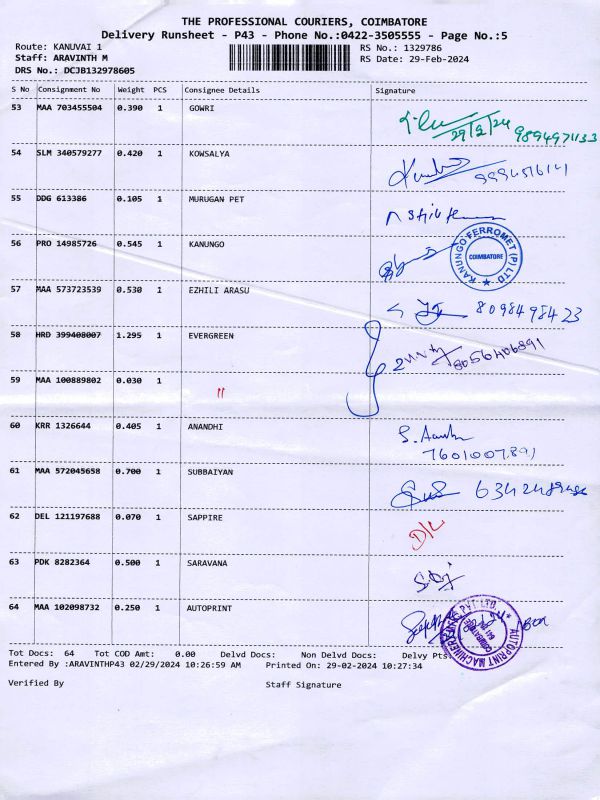 THE PROFESSIONAL COURIERS, COIMBATORE
Delivery Runsheet - P43 - Phone No.:0422-3505555 - Page No.:5
Route: KANUVAI 1 RS No.: 1329786
Staff: ARAVINTH M RS Date: 29-Feb-2024
DRS No.: DCJB132978605
S No Consignment No Weight PCS Consignee Details Signature
53 MAA 703455504 0.390 1 GOWRI
29/2/24
54 SLM 340579277 0.420 1 KOWSALYA
55 DDG 613386 0.105 1 MURUGAN PET
56 PRO 14985726 0.545 1 KANUNGO
KANUNGO FERROMET (P) LTD
COIMBATORE
57 MAA 573723539 0.530 1 EZHILI ARASU
8098498423
58 HRD 399408007 1.295 1 EVERGREEN
8056406891
59 MAA 100889802 0.030 1 "
60 KRR 1326644 0.405 1 ANANDHI
7601007891
61 MAA 572045658 0.700 1 SUBBAIYAN
62 DEL 121197688 0.070 1 SAPPIRE
D/L
63 PDK 8282364 0.500 1 SARAVANA
64 MAA 102098732 0.250 1 AUTOPRINT
Tot Docs: 64 Tot COD Amt: 0.00 Delvd Docs: Non Delvd Docs: Delvy Pts
Entered By :ARAVINTHP43 02/29/2024 10:26:59 AM Printed On: 29-02-2024 10:27:34
Verified By Staff Signature